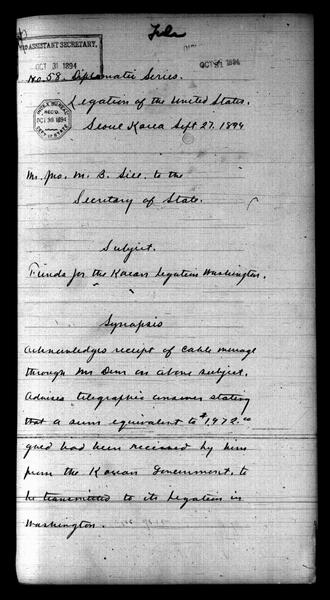 File
ASSISTANT SECRETARY,
OCT 31 1894
OCT 31 1894
No. 58. Diplomatic Series.
Legation of the United States.
INDEX BUREAU
REC'D
OCT 30 1894
DEPT. OF STATE
Seoul Korea Sept 27. 1894
Mr. Jno. M. B. Sill. to the
Secretary of State.
Subject.
Funds for the Korean Legation Washington.
Synopsis
Acknowledges receipt of cable message
through Mr Dun on above subject.
Advises telegraphic answer stating
that a sum equivalent to $1,972.00
gold had been received by him
from the Korean Government, to
be transmitted to its Legation in
Washington.